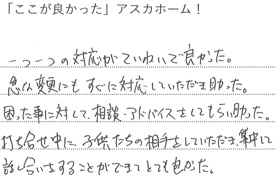 「ここが良かった」アスカホーム！
一つ一つの対応がていねいで良かった。
急な変更にもすぐに対応していただき助った。
困った事に対して、相談・アドバイスをしてもらい助った。
打ち合せ中に子供たちの相手をしていただき、集中して
話し合いをすることができてとても良かった。